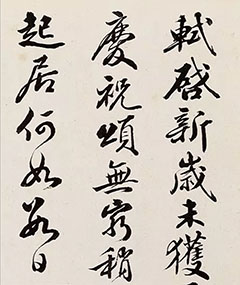 軾啓新歳未獲
慶祝頌無窮稍
起居何如數日